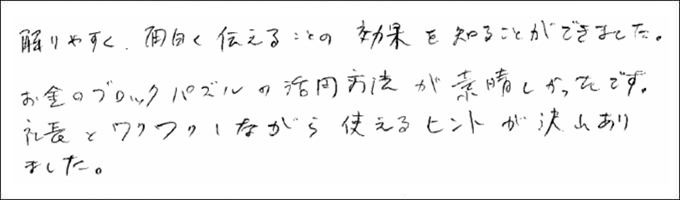 解りやすく、面白く伝えることの効果を知ることができました。
お金のブロックパズルの活用方法が素晴しかったです。
社長とワクワクしながら使えるヒントが沢山あり
ました。